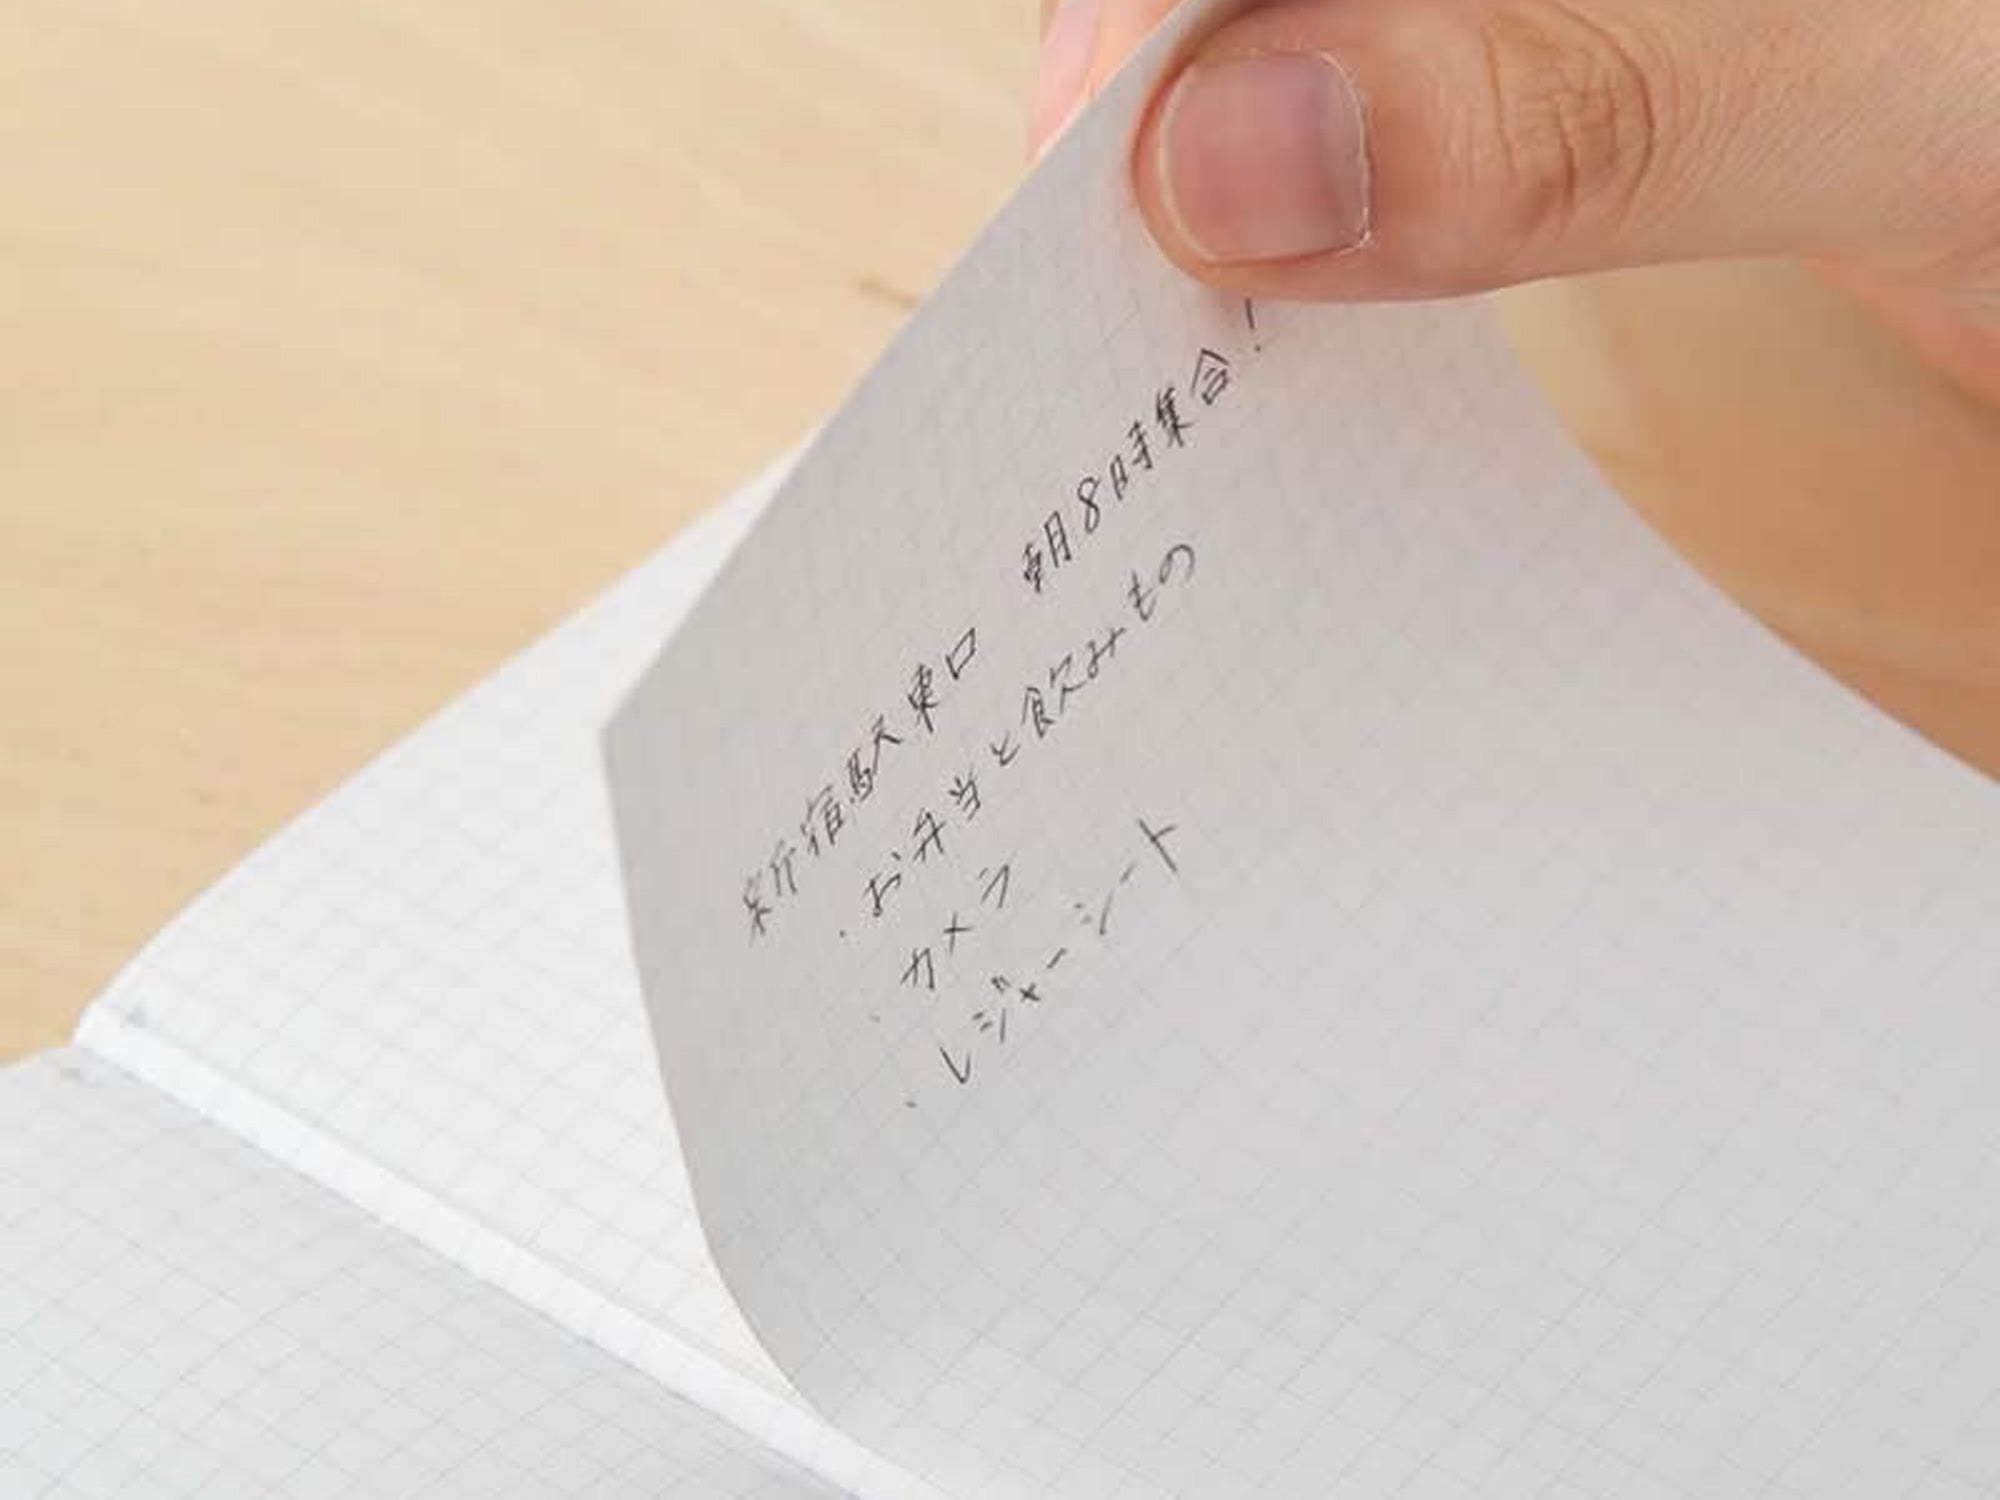 新宿駅東口　朝8時集合！
・お弁当と飲みもの
・カメラ
・レジャーシート